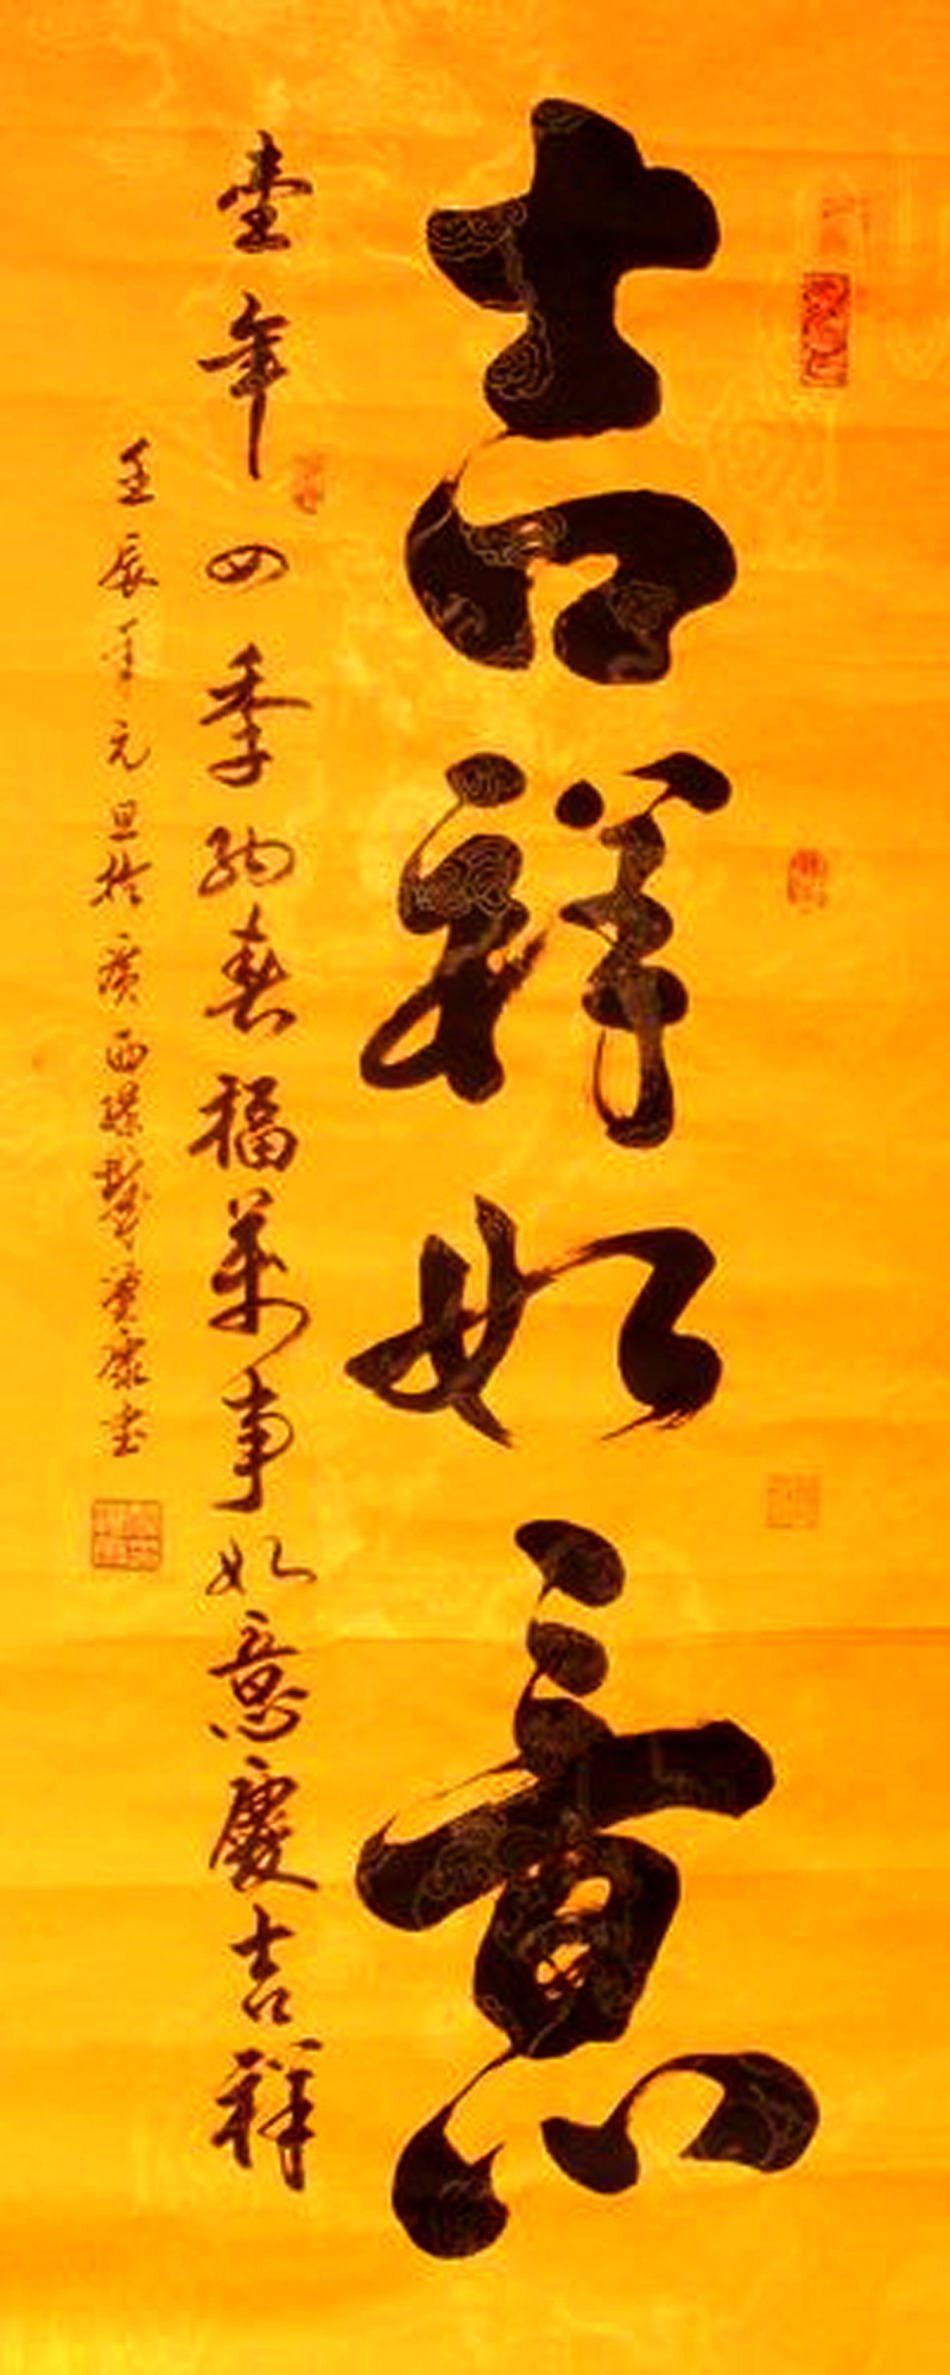 吉祥如意
壹年四季納春福萬事如意慶吉祥
壬辰年元旦於廣西 康書